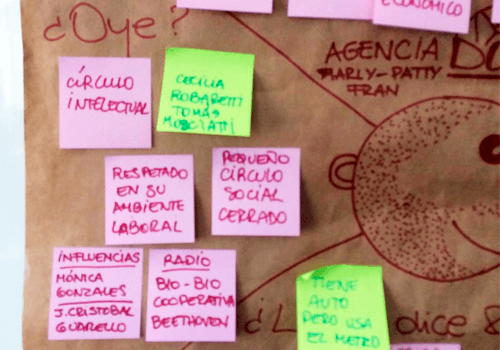 ECONÓMICO
¿Oye?
AGENCIA
MARLY-PATTY
FRAN
CÍRCULO
INTELECTUAL
CECILIA
ROBARETTI
TOMÁS
MOSCIATTI
RESPETADO
EN SU
AMBIENTE
LABORAL
PEQUEÑO
CÍRCULO
SOCIAL
CERRADO
INFLUENCIAS
MÓNICA
GONZALES
J. CRISTOBAL
GUARELLO
RADIO
BIO-BIO
COOPERATIVA
BEETHOVEN
TIENE
AUTO
PERO USA
EL METRO
dice